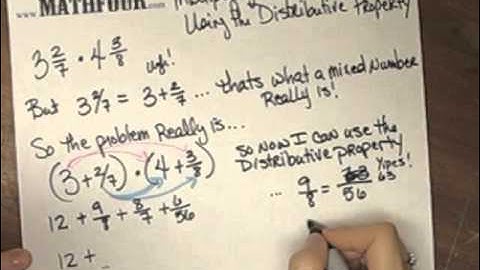 www.MATHFOUR.com
Using the Distributive Property
3 2/7 · 4 3/8 ugh!
But 3 2/7 = 3 + 2/7 ... thats what a mixed Number
Really is!
So the problem Really is...
(3 + 2/7) · (4 + 3/8)
12 + 9/8 + 8/7 + 6/56
12 +
so now I can use the
Distributive property
Yipes!
... 9/8 = 63/56
63